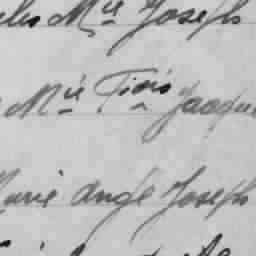 les Mie Joseph
Mie Tiois Jacqu
Marie Ange Joseph